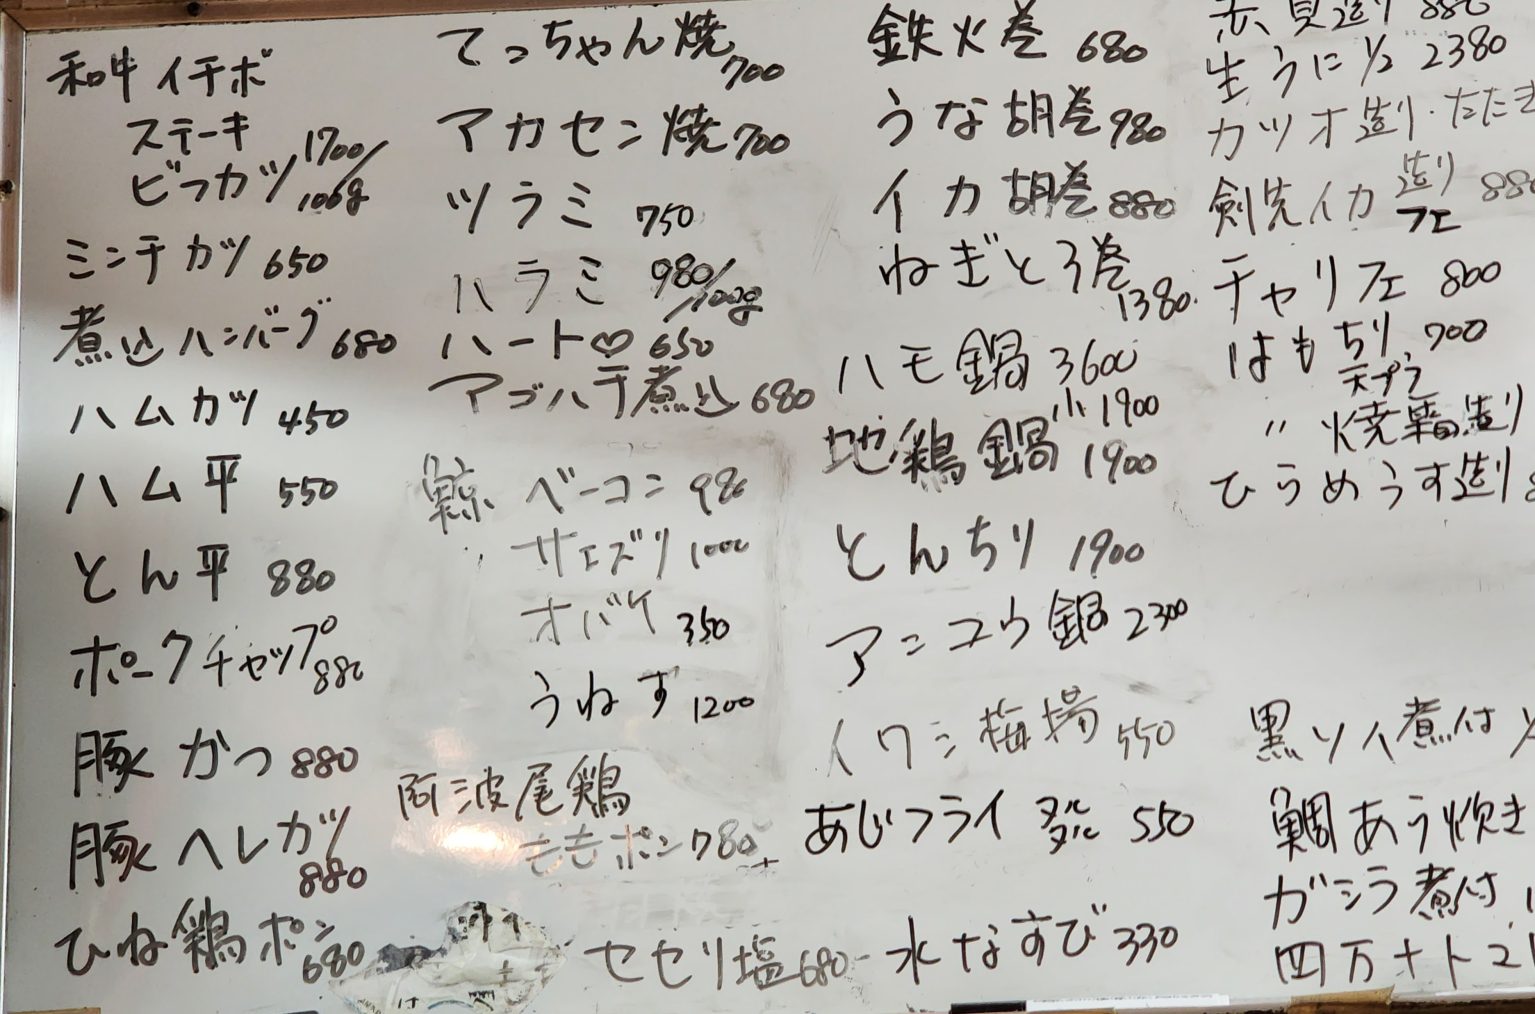 和牛イチボ
ステーキ
ビフカツ 1700/100g
ミンチカツ 650
煮込ハンバーグ 680
ハムカツ 450
ハム平 550
とん平 880
ポークチャップ 880
豚かつ 880
豚ヘレカツ 880
ひね鶏ポン 680
てっちゃん焼 700
アカセン焼 700
ツラミ 750
ハラミ 980/100g
ハート♡ 650
アゴハチ煮込 680
鯨 ベーコン 980
サエズリ 1000
オバケ 350
うねす 1200
阿波尾鶏
ももポン 780
セセリ塩 680
鉄火巻 680
うな胡巻 980
イカ胡巻 880
ねぎとろ巻 1380
ハモ鍋 3600
小 1900
地鶏鍋 1900
とんちり 1900
アンコウ鍋 2300
イワシ梅揚 550
あじフライ タルタル 550
水なすび 330
赤貝造り 880
生うに 1/2 2380
カツオ造り・たたき
剣先イカ 造り 880
フエ
チャリフエ 800
はもちり 700
天プラ
〃 焼霜造り
ひらめうす造り
黒ソイ煮付
鯛あら炊き
ガシラ煮付
四万十トマト